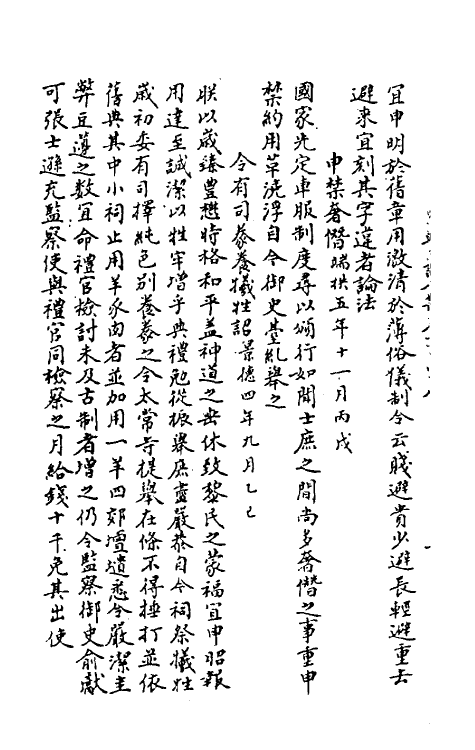 宜申明於舊章用激清於薄俗儀制令云賤避貴少避長輕避重去
避来宜刻其字違者論法
申禁奢僭端拱五年十一月丙戌
國家先定車服制度尋以頒行如聞士庶之間尚多奢僭之事重申
禁約用革澆浮自今御史臺糺舉之
令有司豢養犧牲詔景德四年九月乙巳
朕以歲臻豊懋時格和平蓋神道之垂休致黎民之蒙福宜申昭報
用達至誠潔以牲牢增乎典禮勉從振舉庶盡嚴恭自今祠祭犧牲
歲初委有司擇純色别養豢之令太常寺提舉在條不得捶打並依
舊典其中小祠止用羊豕肉者並加用一羊四郊壇壝悉令嚴潔圭
幣豆籩之數宜命禮官檢討未及古制者增之仍令監察御史俞獻
可張士遜充監察使與禮官同檢察之月給錢十千免其出使